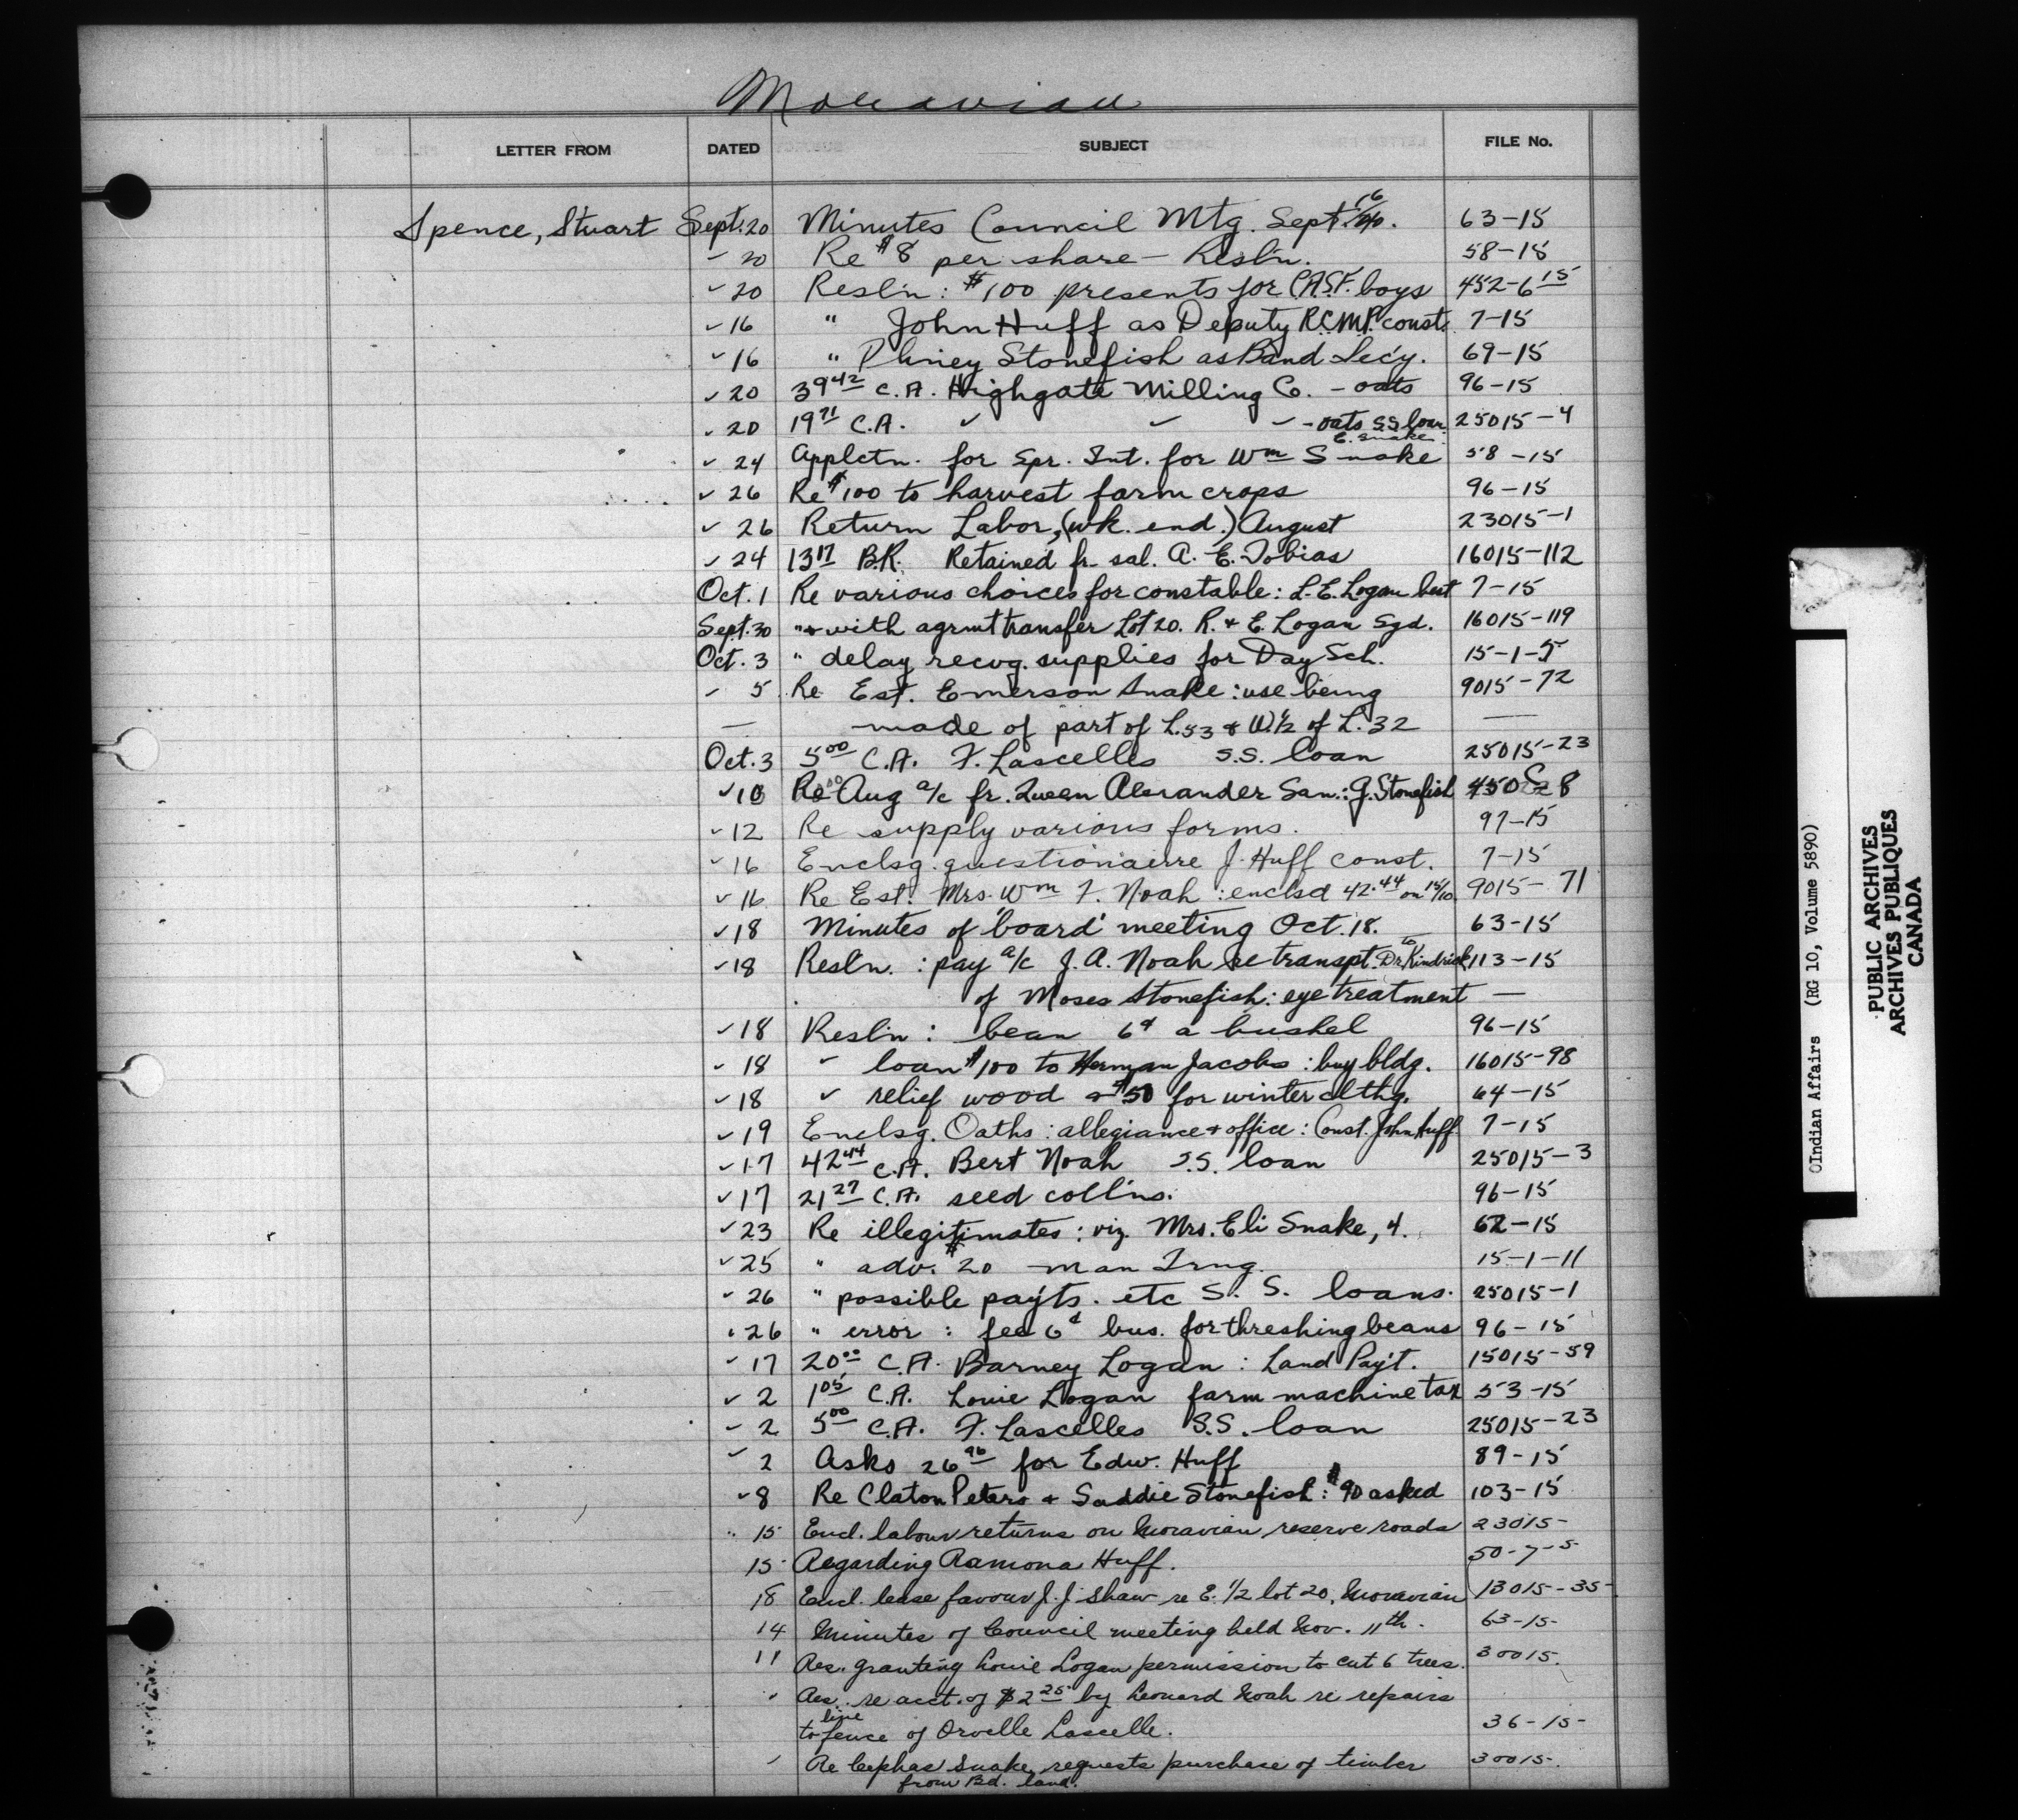 Moravian
LETTER FROM DATED SUBJECT FILE No.
Spence, Stuart Sept. 20 Minutes Council Mtg. Sept. 16/40. 63-15
" 20 Re $8 per share - Resln. 58-15
" 20 Resln: $100 presents for C.A.S.F. boys 452-6 15
" 16 " John Huff as Deputy R.C.M.P. const. 7-15
" 16 " Phiney Stonefish as Band Sec'y. 69-15
" 20 39 42 C.A. Highgate Milling Co. - oats 96-15
" 20 19 71 C.A. " " " - oats S.S. loan E. Snake 25015-4
" 24 Applctn. for Spr. Int. for Wm Snake 58-15
" 26 Re $100 to harvest farm crops 96-15
" 26 Return Labor, (wk. end.) August 23015-1
" 24 13 17 B.R. Retained fr. sal. A. E. Tobias 16015-112
Oct. 1 Re various choices for constable: L.E. Logan best 7-15
Sept. 30 " with agrmt transfer Lot 20. R. & E. Logan Sgd. 16015-119
Oct. 3 " delay recvg. supplies for Day Sch. 15-1-5
" 5 Re Est. Emerson Snake: use being 9015-72
— made of part of L.53 & W.1/2 of L.32 —
Oct. 3 5 00 C.A. F. Lascelles S.S. loan 25015-23
" 10 Re Aug a/c fr. Queen Alexander San.: J. Stonefish
" 12 Re supply various forms. 97-15
" 16 Enclsg. questionairre J. Huff const. 7-15
" 16 Re Est. Mrs. Wm F. Noah: enclsd 42.44 on 15/10. 9015-71
" 18 Minutes of 'board' meeting Oct. 18. 63-15
" 18 Resln.: pay a/c J.A. Noah re transpt. to Dr. Kindrick 113-15
of Moses Stonefish: eye treatment —
" 18 Resln: bean 6¢ a bushel 96-15
" 18 " loan $100 to Herman Jacobs: buy bldg. 16015-98
" 18 " relief wood & $50 for winter clthg. 64-15
" 19 Enclsg. Oaths: allegiance & office: Const. John Huff 7-15
" 17 42 44 C.A. Bert Noah S.S. loan 25015-3
" 17 21 27 C.A. seed coll'ns. 96-15
" 23 Re illegitimates: viz. Mrs. Eli Snake, 4. 62-15
" 25 " adv. $20 man Trng. 15-1-11
" 26 " possible pay'ts. etc S.S. loans. 25015-1
" 26 " error: fee 6¢ bus. for threshing beans 96-15
" 17 20 00 C.A. Barney Logan: Land Pay't. 15015-59
" 2 1 05 C.A. Louie Logan farm machine tax 53-15
" 2 5 00 C.A. F. Lascelles S.S. loan 25015-23
" 2 Asks 26 96 for Edw. Huff 89-15
" 8 Re Claton Peters & Saddie Stonefish: $90 asked 103-15
" 15 Encl. labour returns on Moravian reserve roads 23015-
15 Regarding Ramona Huff. 50-7-5
18 Encl. lease favour J.J. Shaw re E. 1/2 lot 20, Moravian 13015-35-
14 Minutes of Council meeting held Nov. 11th. 63-15-
11 Res. granting Louie Logan permission to cut 6 trees. 30015.
" Res. re acct. of $2 25 by Leonard Noah re repairs
to line fence of Orvelle Lascelle. 36-15-
" Re Cephas Snake requests purchase of timber 30015-
from Bd. land.
©Indian Affairs (RG 10, Volume 5890)
PUBLIC ARCHIVES
ARCHIVES PUBLIQUES
CANADA